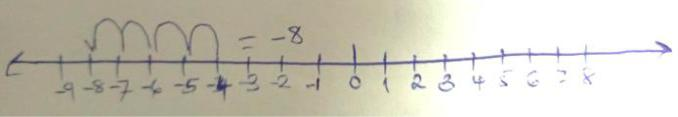 = -8
-9 -8 -7 -6 -5 -4 -3 -2 -1 0 1 2 3 4 5 6 7 8